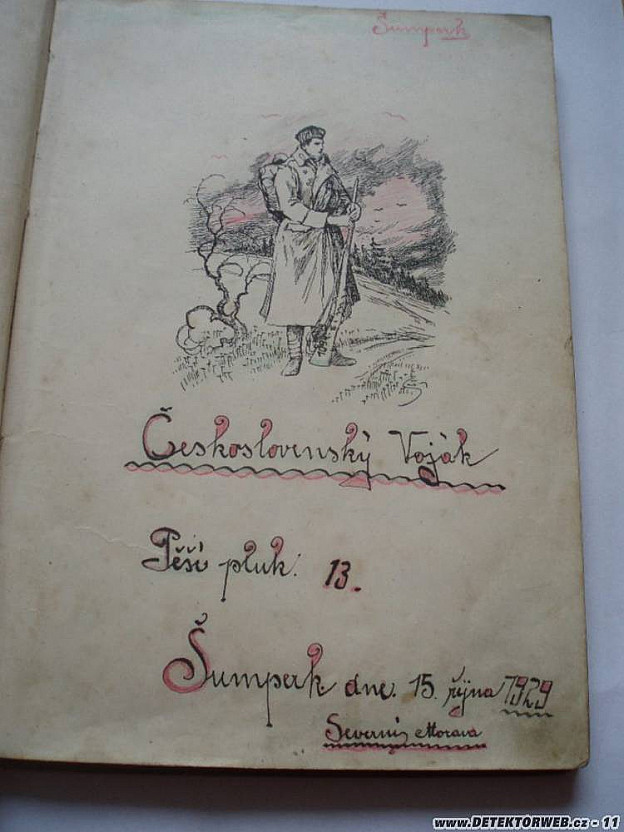 Šumperk
Československý Voják
Pěší pluk. 13.
Šumperk dne. 15. října 1929
Severní Morava
www.DETEKTORWEB.cz - 11